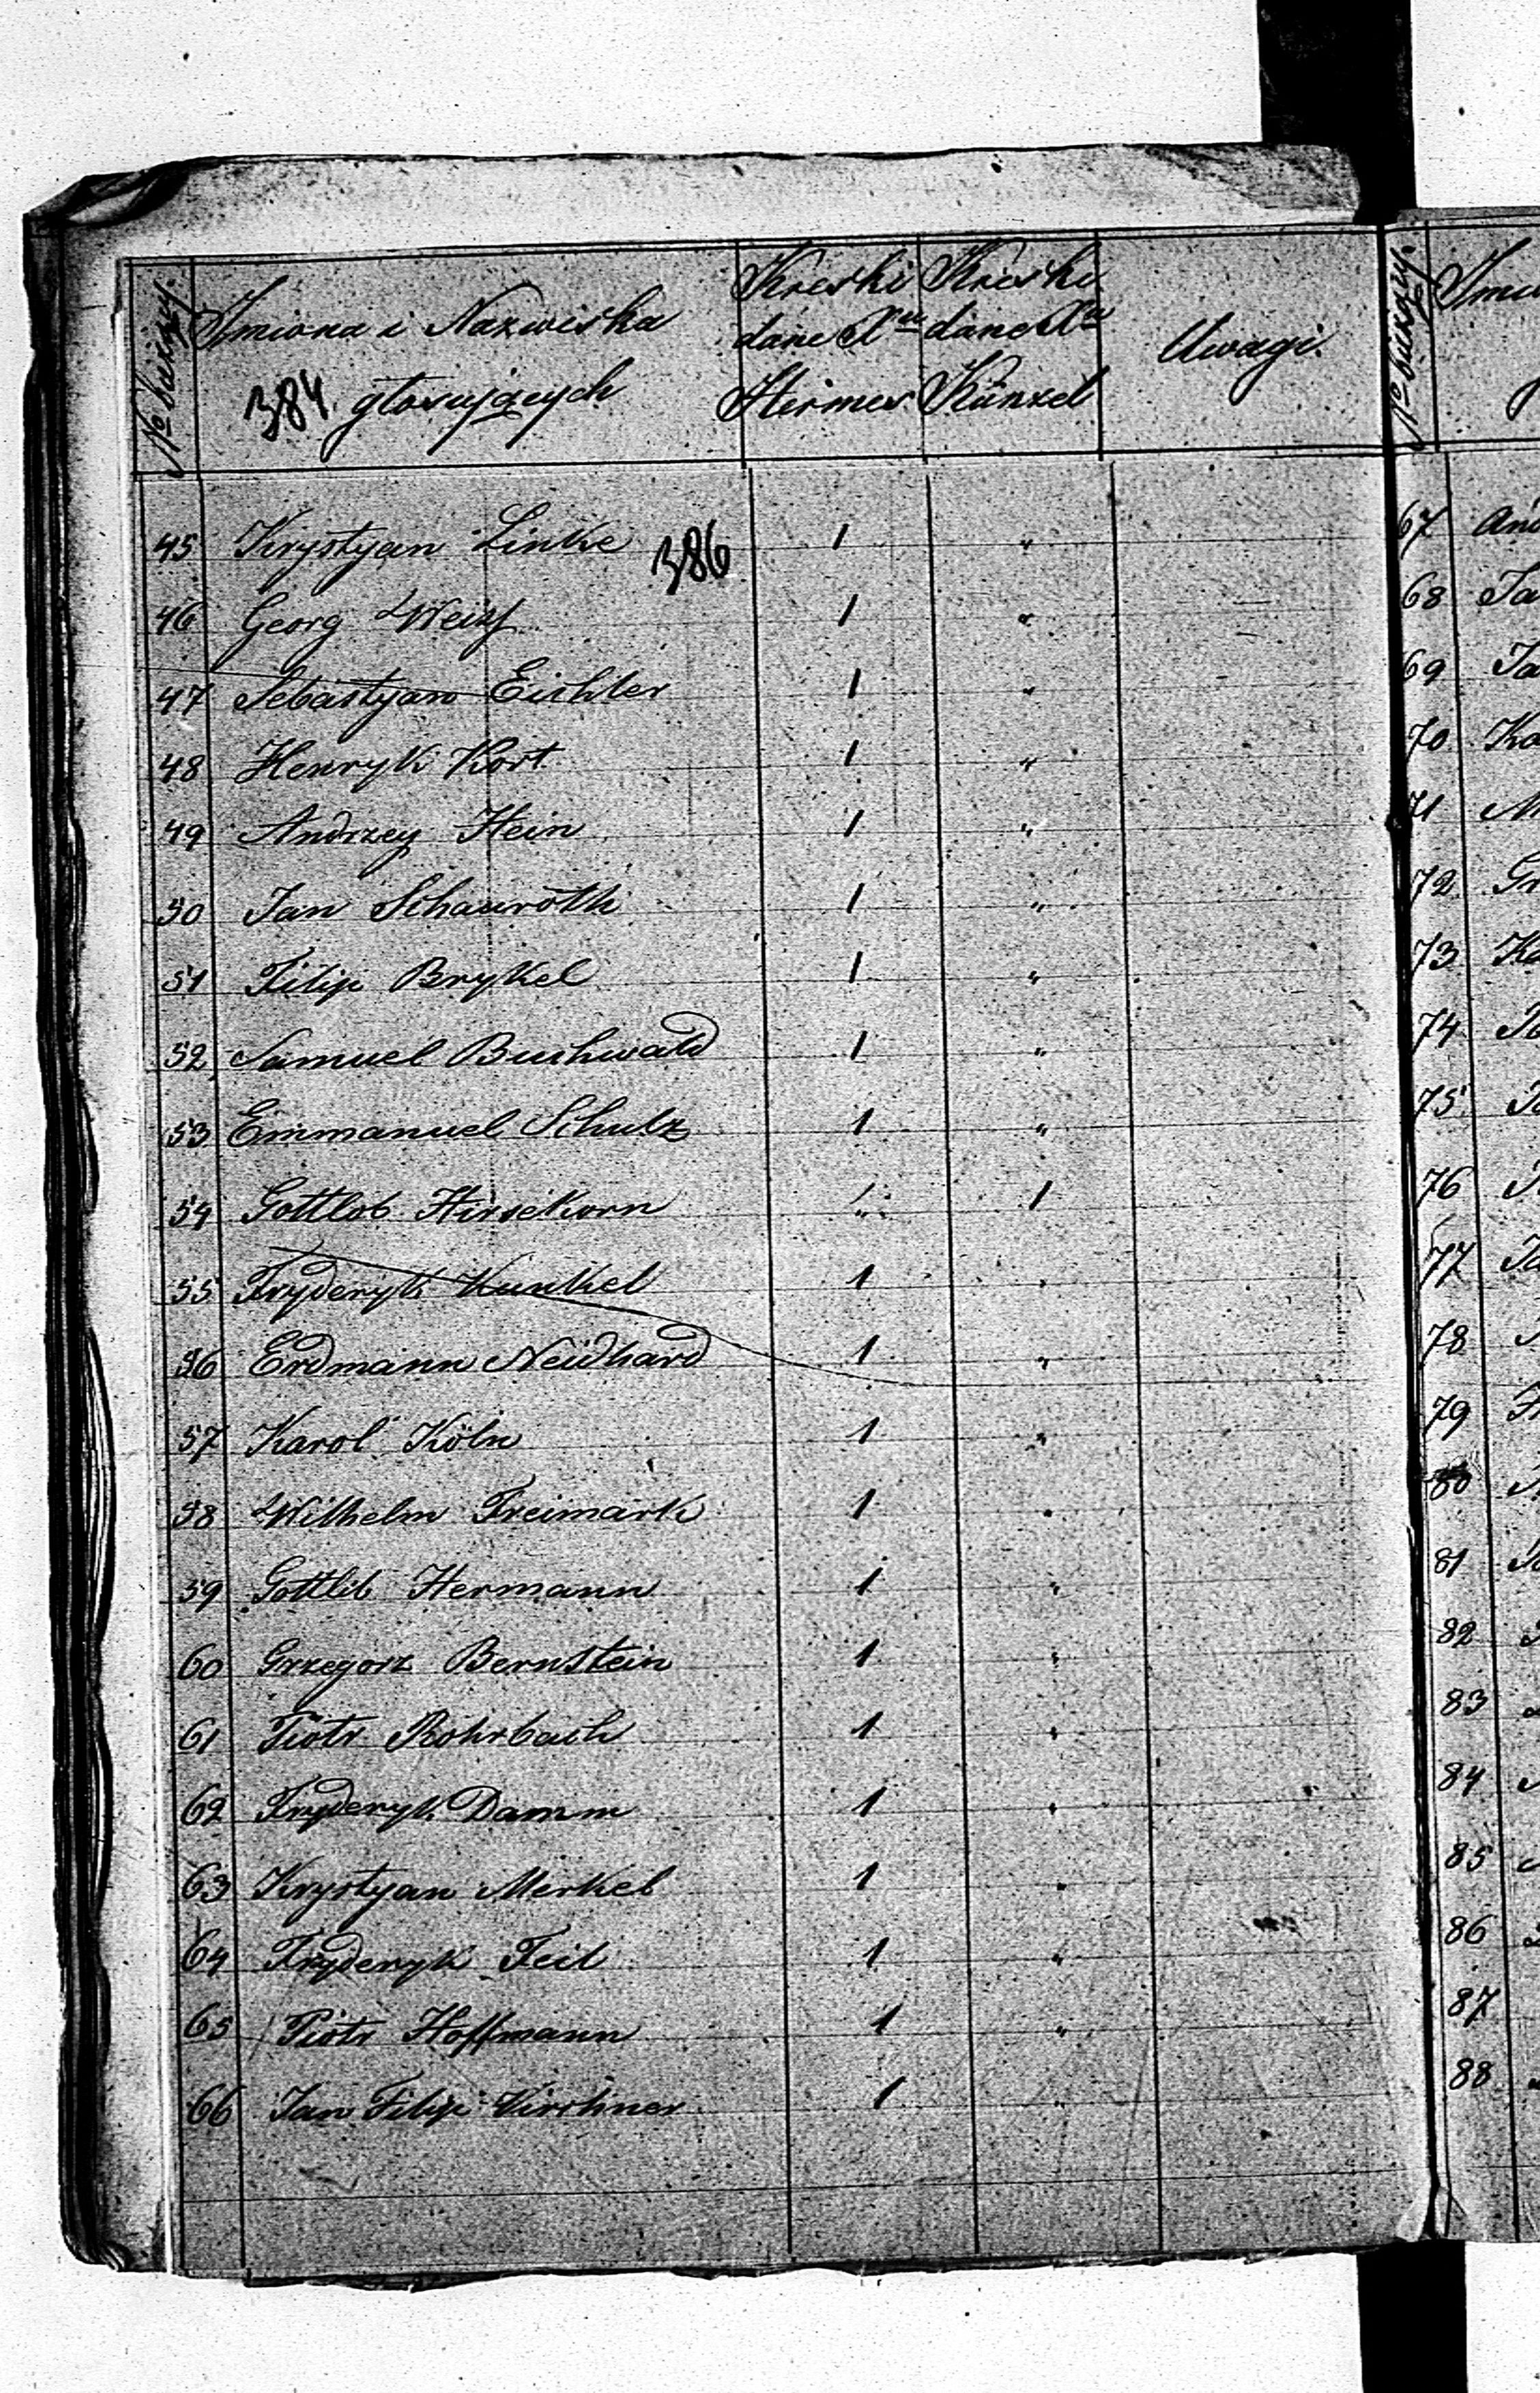 No bieżący.
Imiona i Nazwiska
głosujących
384
Kreski
dane Xu
Hirmes
Kreski
dane Xu
Künzel
Uwagi.
45 Krystyan Linke 1 "
386
46 Georg Weiß 1 "
47 Sebastyan Eichler 1 "
48 Henryk Kort 1 "
49 Andrzey Hein 1 "
50 Jan Schauroth 1 "
51 Filip Brykel 1 "
52 Samuel Buchwald 1 "
53 Emmanuel Schulz 1 "
54 Gottlob Hirsekorn " 1
55 Fryderyk Kunkel 1 "
56 Erdmann Neidhard 1 "
57 Karol Köln 1 "
58 Wilhelm Freimark 1 "
59 Gottlib Hermann 1 "
60 Grzegorz Bernstein 1 "
61 Piotr Rohrbach 1 "
62 Fryderyk Damm 1 "
63 Krystyan Merkel 1 "
64 Fryderyk Feil 1 "
65 Piotr Hoffmann 1 "
66 Jan Filip Kirchner 1 "
No bieżący.
67
68
69
70
71
72
73
74
75
76
77
78
79
80
81
82
83
84
85
86
87
88